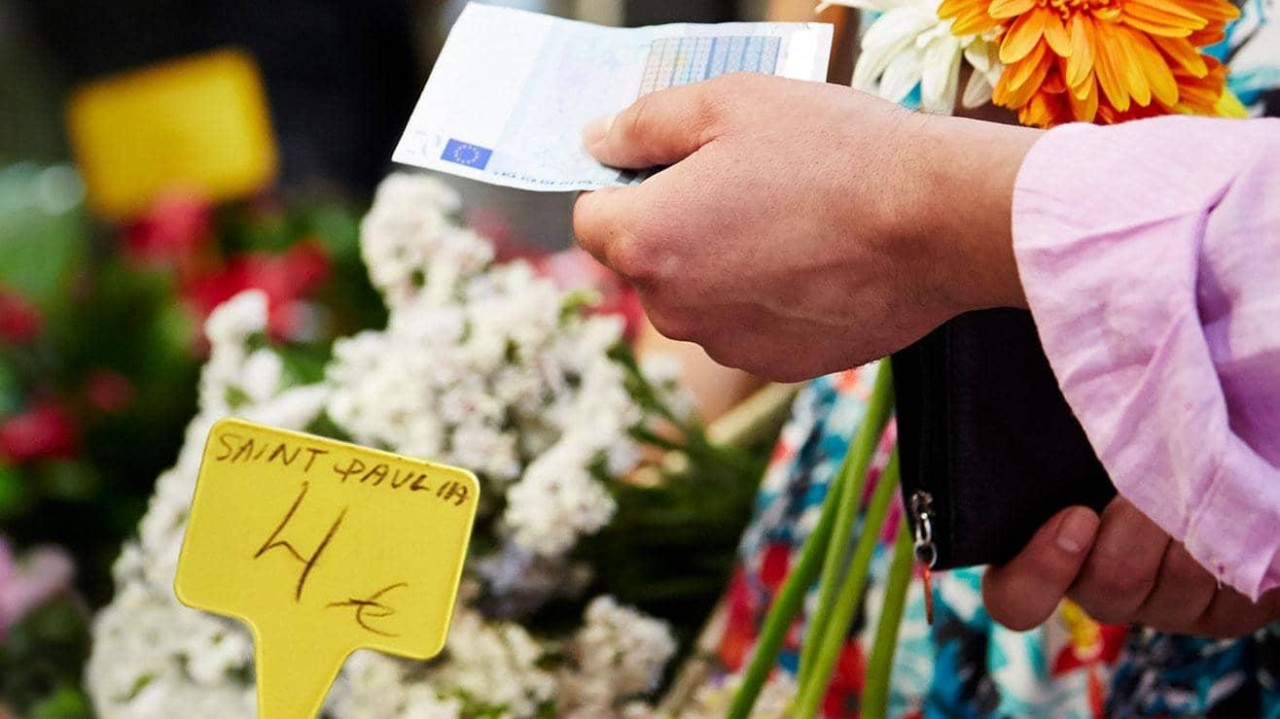 SAINT PAULIA
4
€